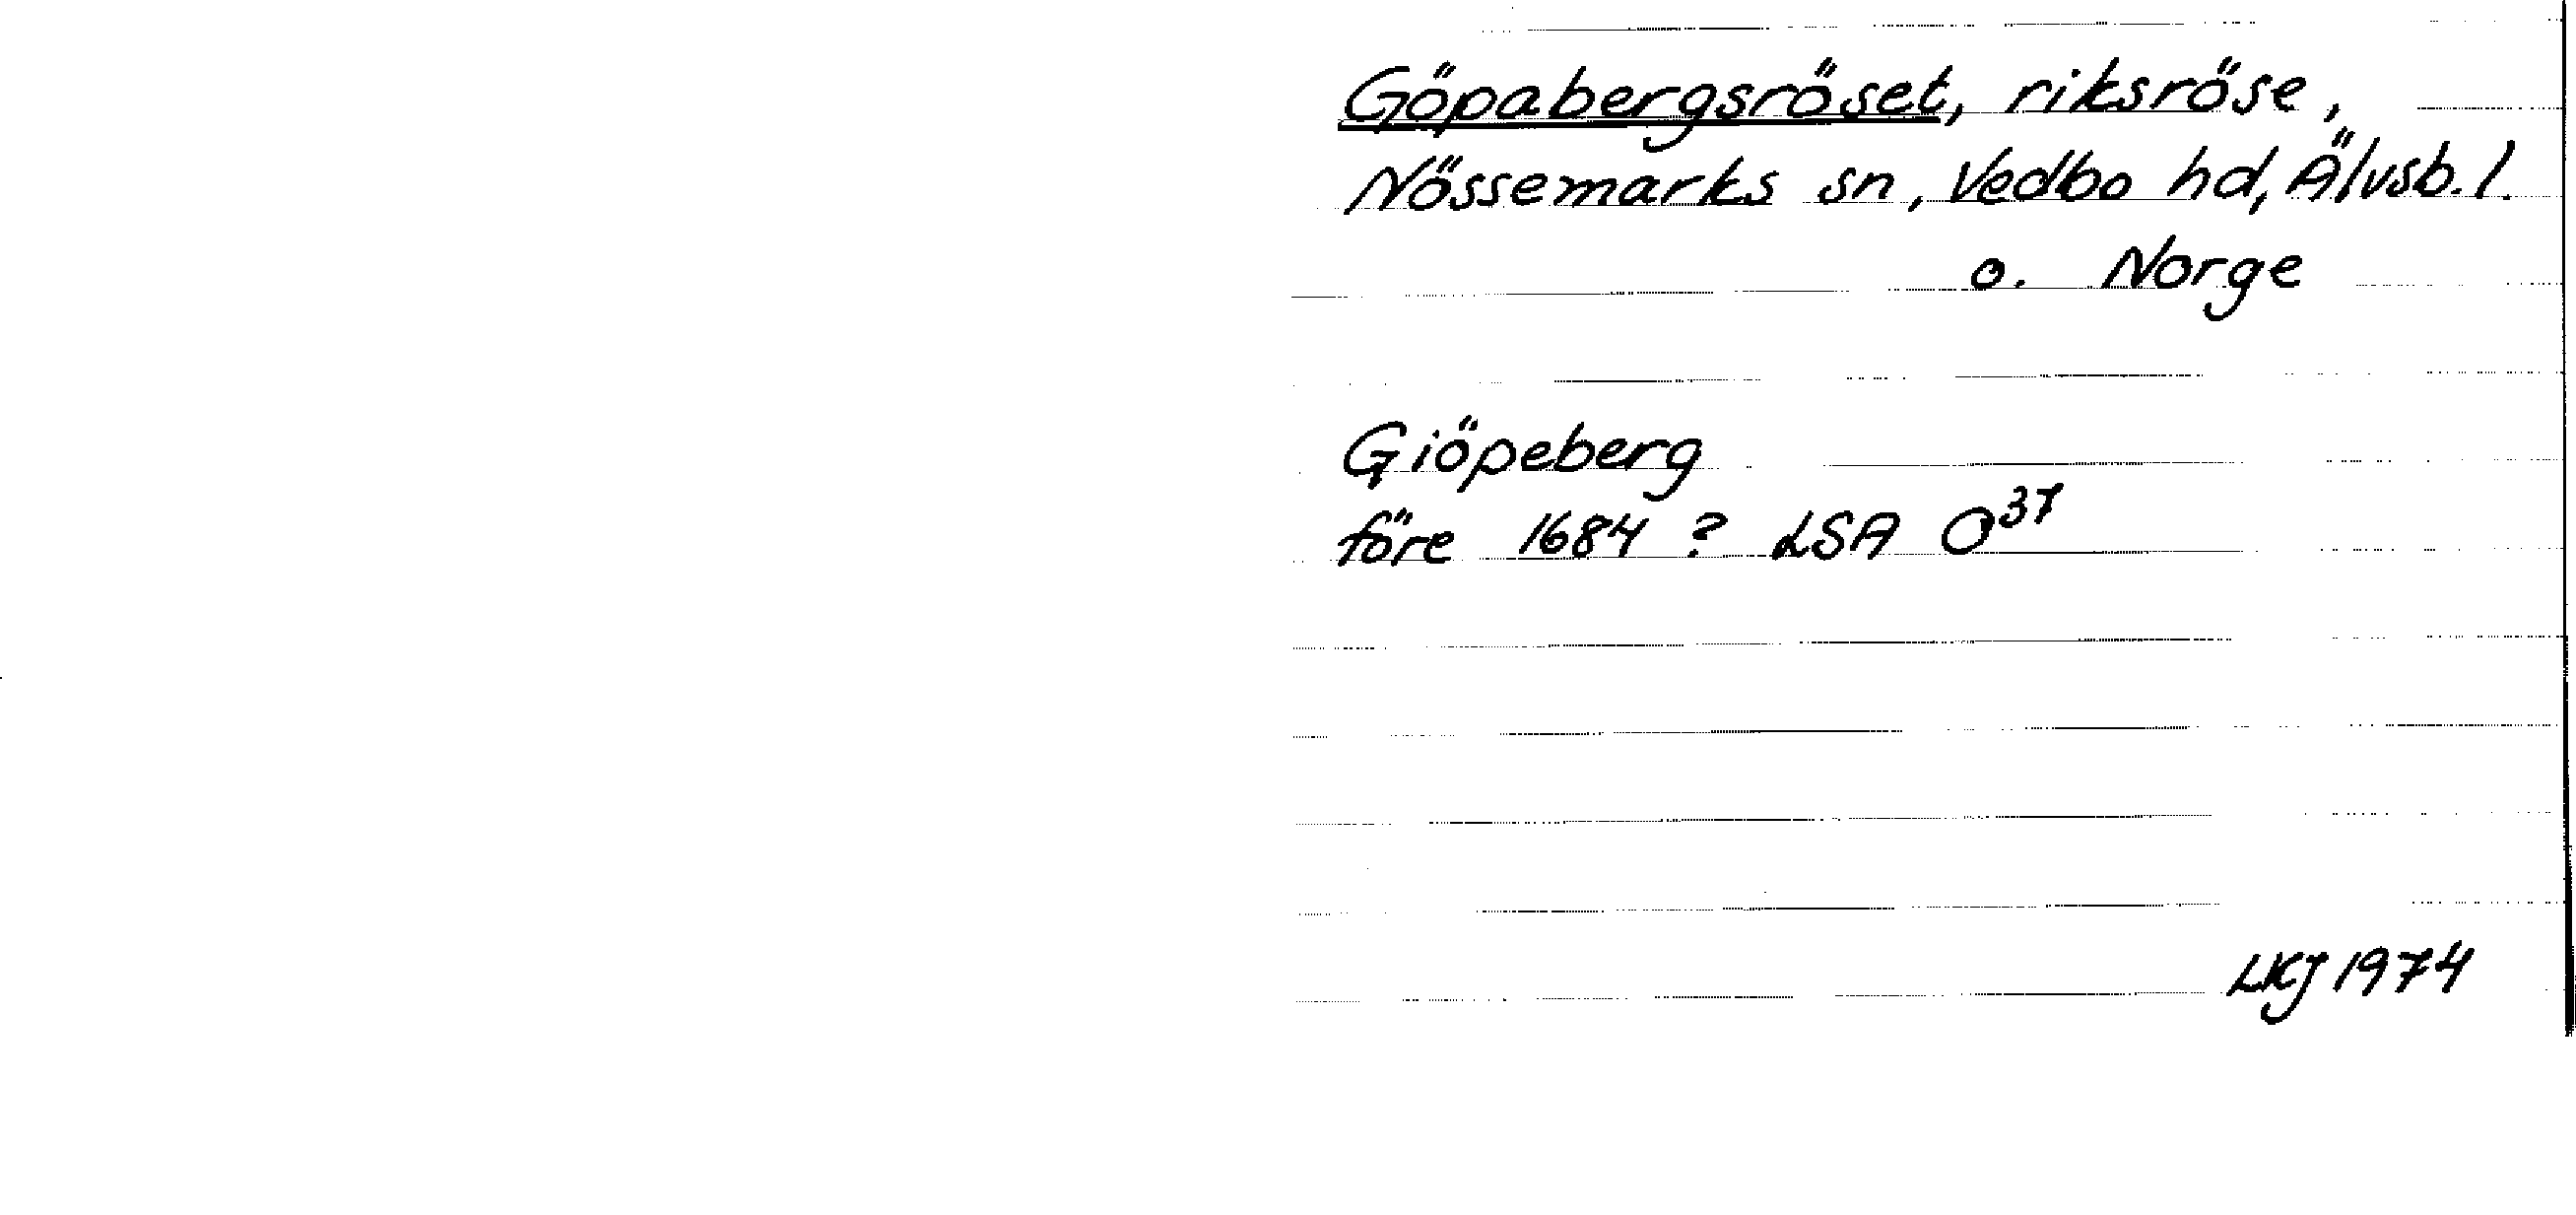 Göpabergsröset, riksröse,
Nössemarks sn, Vedbo hd, Älvsb. l.
o. Norge
Giöpeberg
före 1684 ? LSA O³⁷
LKJ 1974